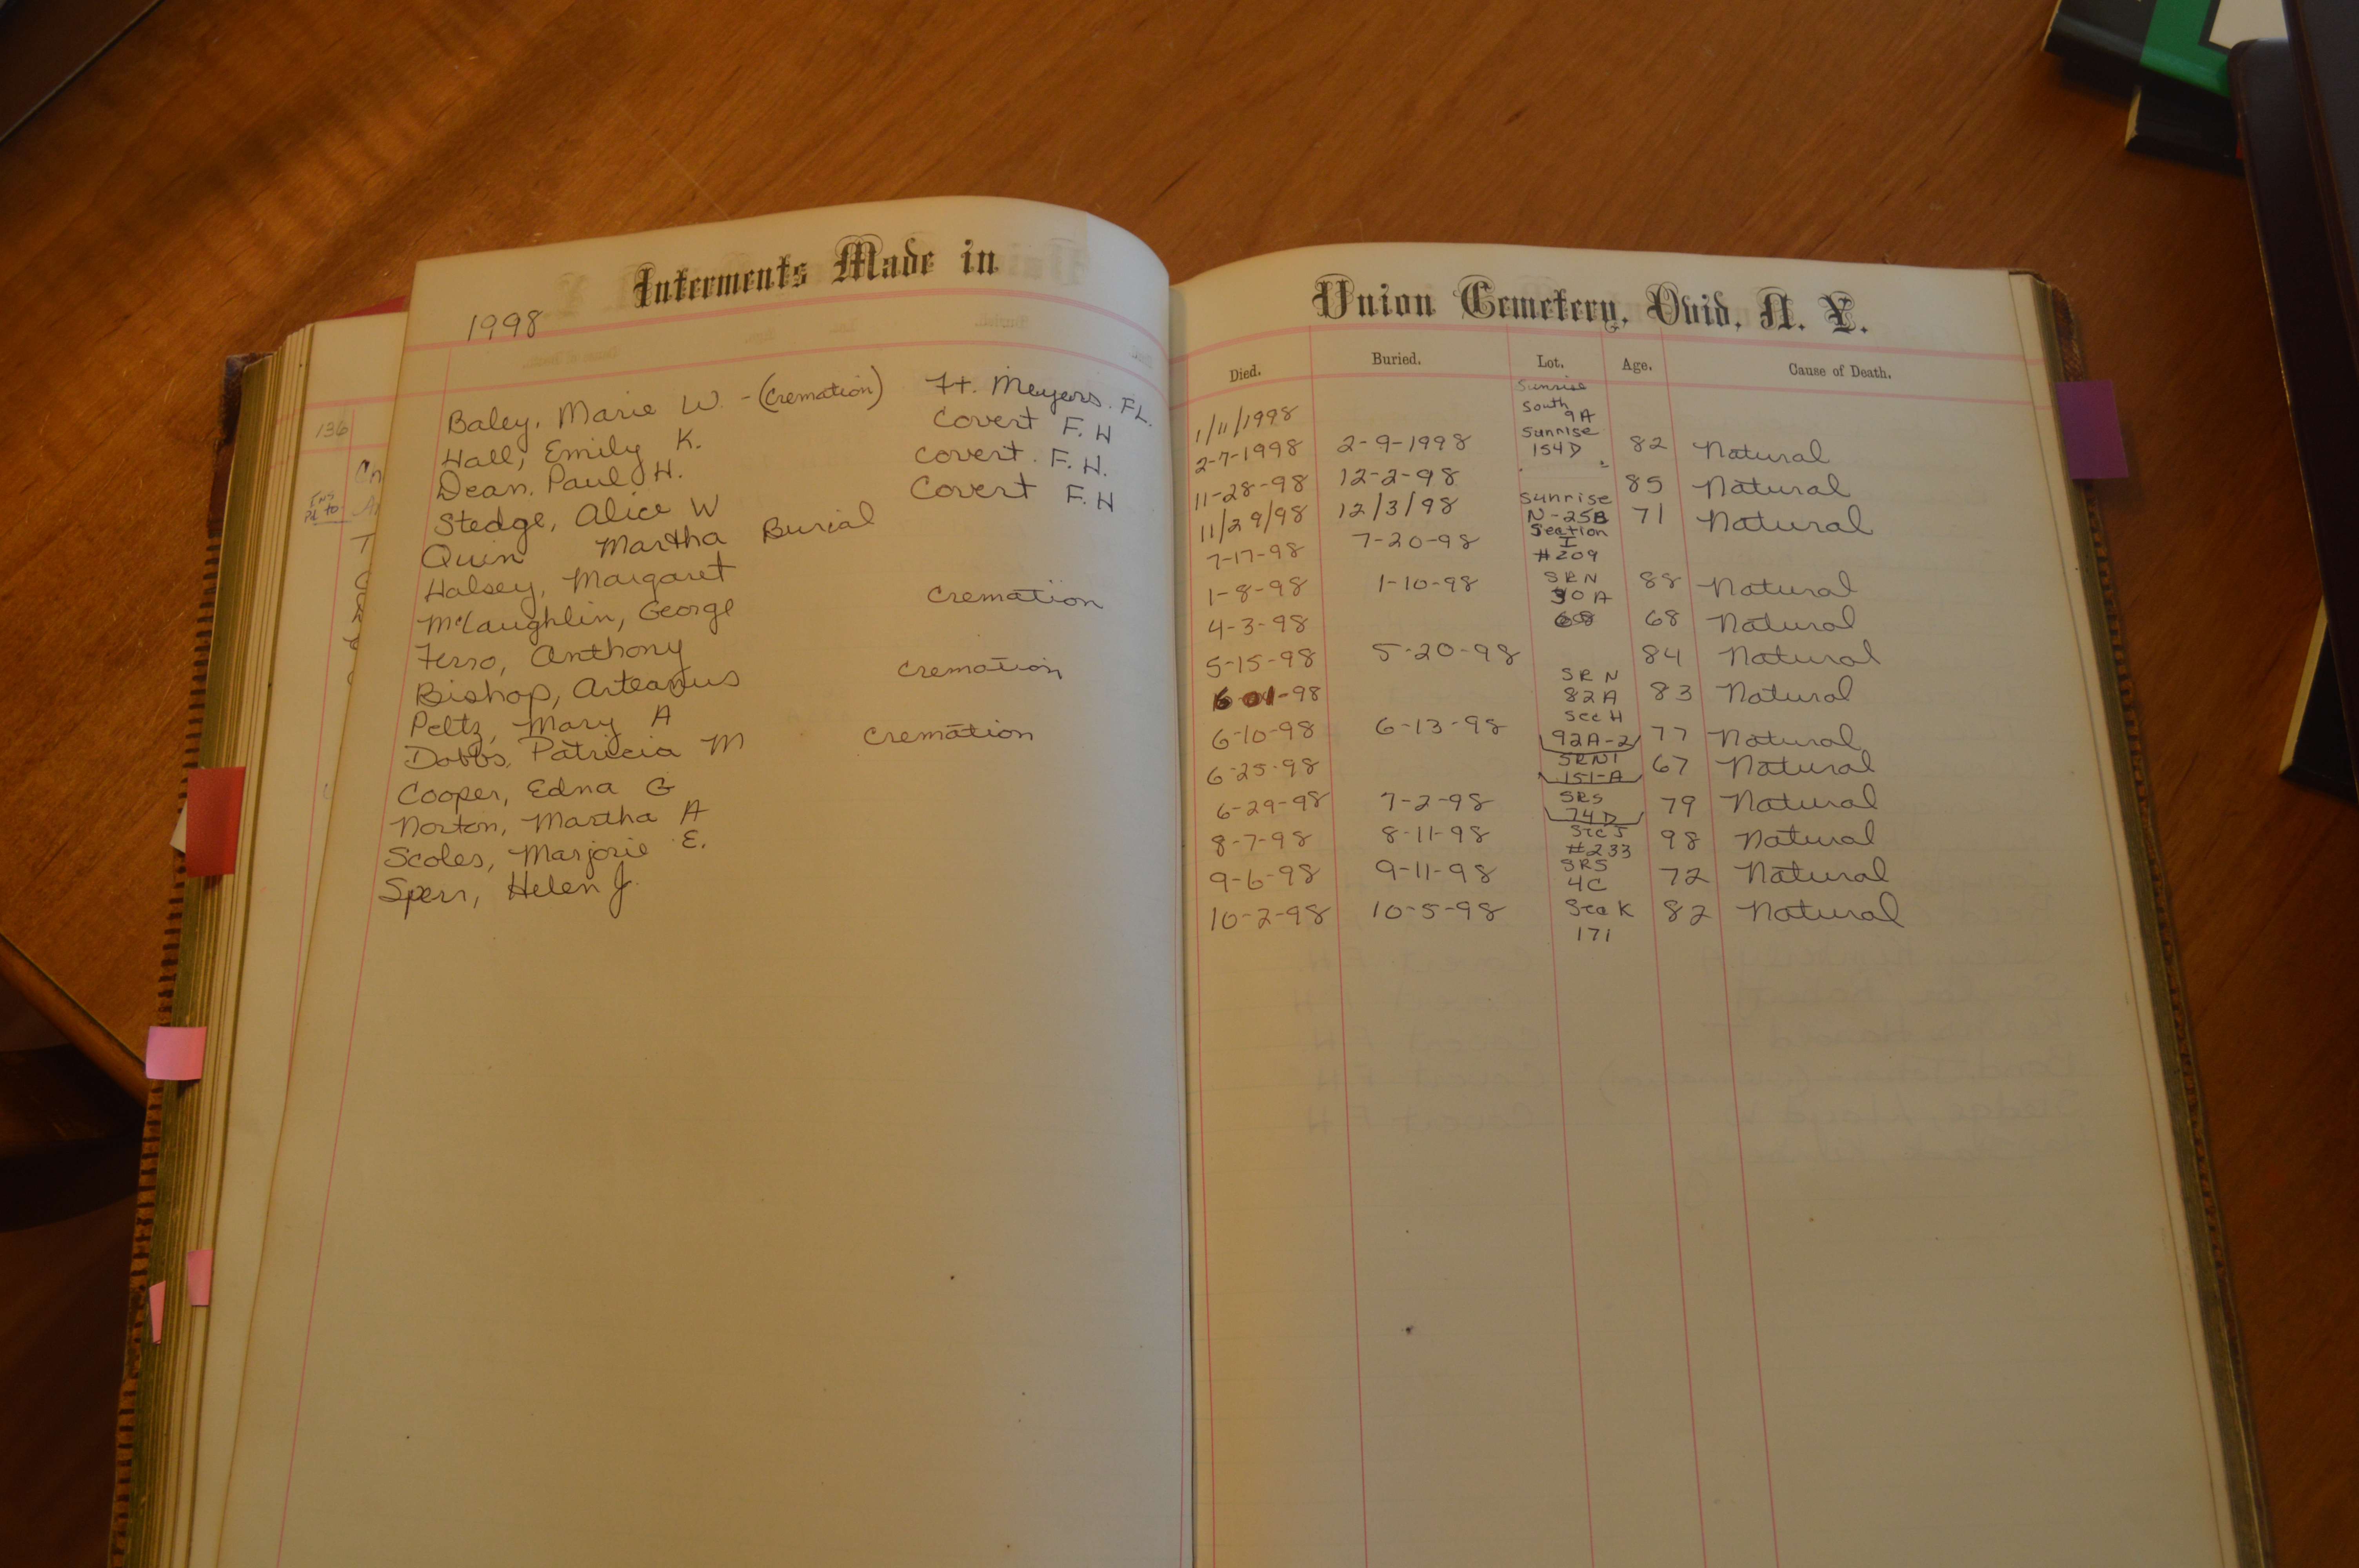 Interments Made in
Union Cemetery, Ovid, N. Y.
1998
Died. Buried. Lot. Age. Cause of Death.
Baley, Marie W. - (Cremation) Ft. Meyers. FL. 1/11/1998 Sunrise South 9A
Hall, Emily K. Covert F. H 2-7-1998 2-9-1998 Sunrise 154D 82 Natural
Dean, Paul H. Covert. F. H. 11-28-98 12-2-98 85 Natural
Stedge, Alice W Covert F. H 11/29/98 12/3/98 Sunrise N-25B 71 Natural
Quin Martha Burial 7-17-98 7-20-98 Section I #209
Halsey, Margaret 1-8-98 1-10-98 SRN 30A 88 Natural
McLaughlin, George Cremation 4-3-98 68 68 Natural
Ferro, Anthony 5-15-98 5-20-98 84 Natural
Bishop, Arteanus Cremation 6-01-98 SRN 82A 83 Natural
Peltz, Mary A 6-10-98 6-13-98 Sec H 92A-2 77 Natural
Dobbs, Patricia M Cremation 6-25-98 SRN1 151-A 67 Natural
Cooper, Edna G 6-29-98 7-2-98 SRS 74D 79 Natural
Norton, Martha A 8-7-98 8-11-98 Sec J #233 98 Natural
Scoles, Marjorie E. 9-6-98 9-11-98 SRS 4C 72 Natural
Sperr, Helen J. 10-2-98 10-5-98 Sec K 171 82 Natural
136